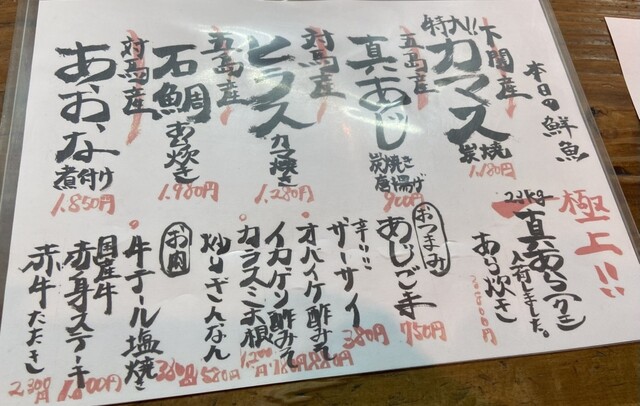 本日の鮮魚
下関産
特大!!
カマス
炭焼
1,180円
五島産
真あじ
炭焼き
唐揚げ
900円
対馬産
ヒラス
カマ焼き
1,280円
五島産
石鯛
あら炊き
1,980円
対馬産
あおな
煮付け
1,850円
極上!!
真あら
入荷しました。
あら炊き
おつまみ
あじごま
750円
辛い!!
ザーサイ
380円
オバイケ酢みそ
880円
イカゲソ酢みそ
カラスミ大根
1,200円
炒りぎんなん
580円
お肉
牛テール塩焼き
国産牛
赤身ステーキ
赤牛たたき
2,300円